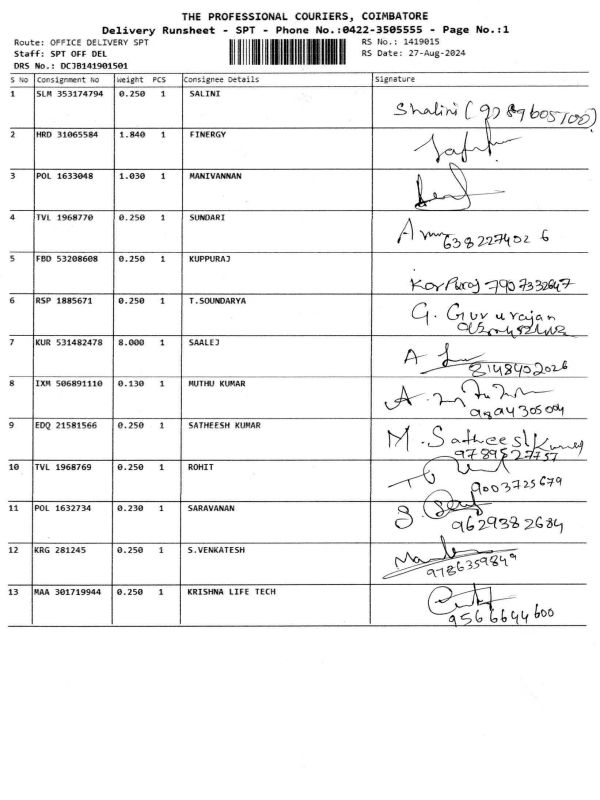 THE PROFESSIONAL COURIERS, COIMBATORE
Delivery Runsheet - SPT - Phone No.:0422-3505555 - Page No.:1
Route: OFFICE DELIVERY SPT RS No.: 1419015
Staff: SPT OFF DEL RS Date: 27-Aug-2024
DRS No.: DCJB141901501
S No Consignment No Weight PCS Consignee Details Signature
1 SLM 353174794 0.250 1 SALINI
Shalini (9789605700)
2 HRD 31065584 1.840 1 FINERGY
3 POL 1633048 1.030 1 MANIVANNAN
4 TVL 1968770 0.250 1 SUNDARI
6382274026
5 FBD 53208608 0.250 1 KUPPURAJ
7907332647
6 RSP 1885671 0.250 1 T.SOUNDARYA
G. Gururajan
7 KUR 531482478 8.000 1 SAALEJ
8148402026
8 IXM 506891110 0.130 1 MUTHU KUMAR
9 EDQ 21581566 0.250 1 SATHEESH KUMAR
M. Satheesh Kumar
9789527757
10 TVL 1968769 0.250 1 ROHIT
9003725679
11 POL 1632734 0.230 1 SARAVANAN
9629382684
12 KRG 281245 0.250 1 S.VENKATESH
9786359849
13 MAA 301719944 0.250 1 KRISHNA LIFE TECH
9566644600